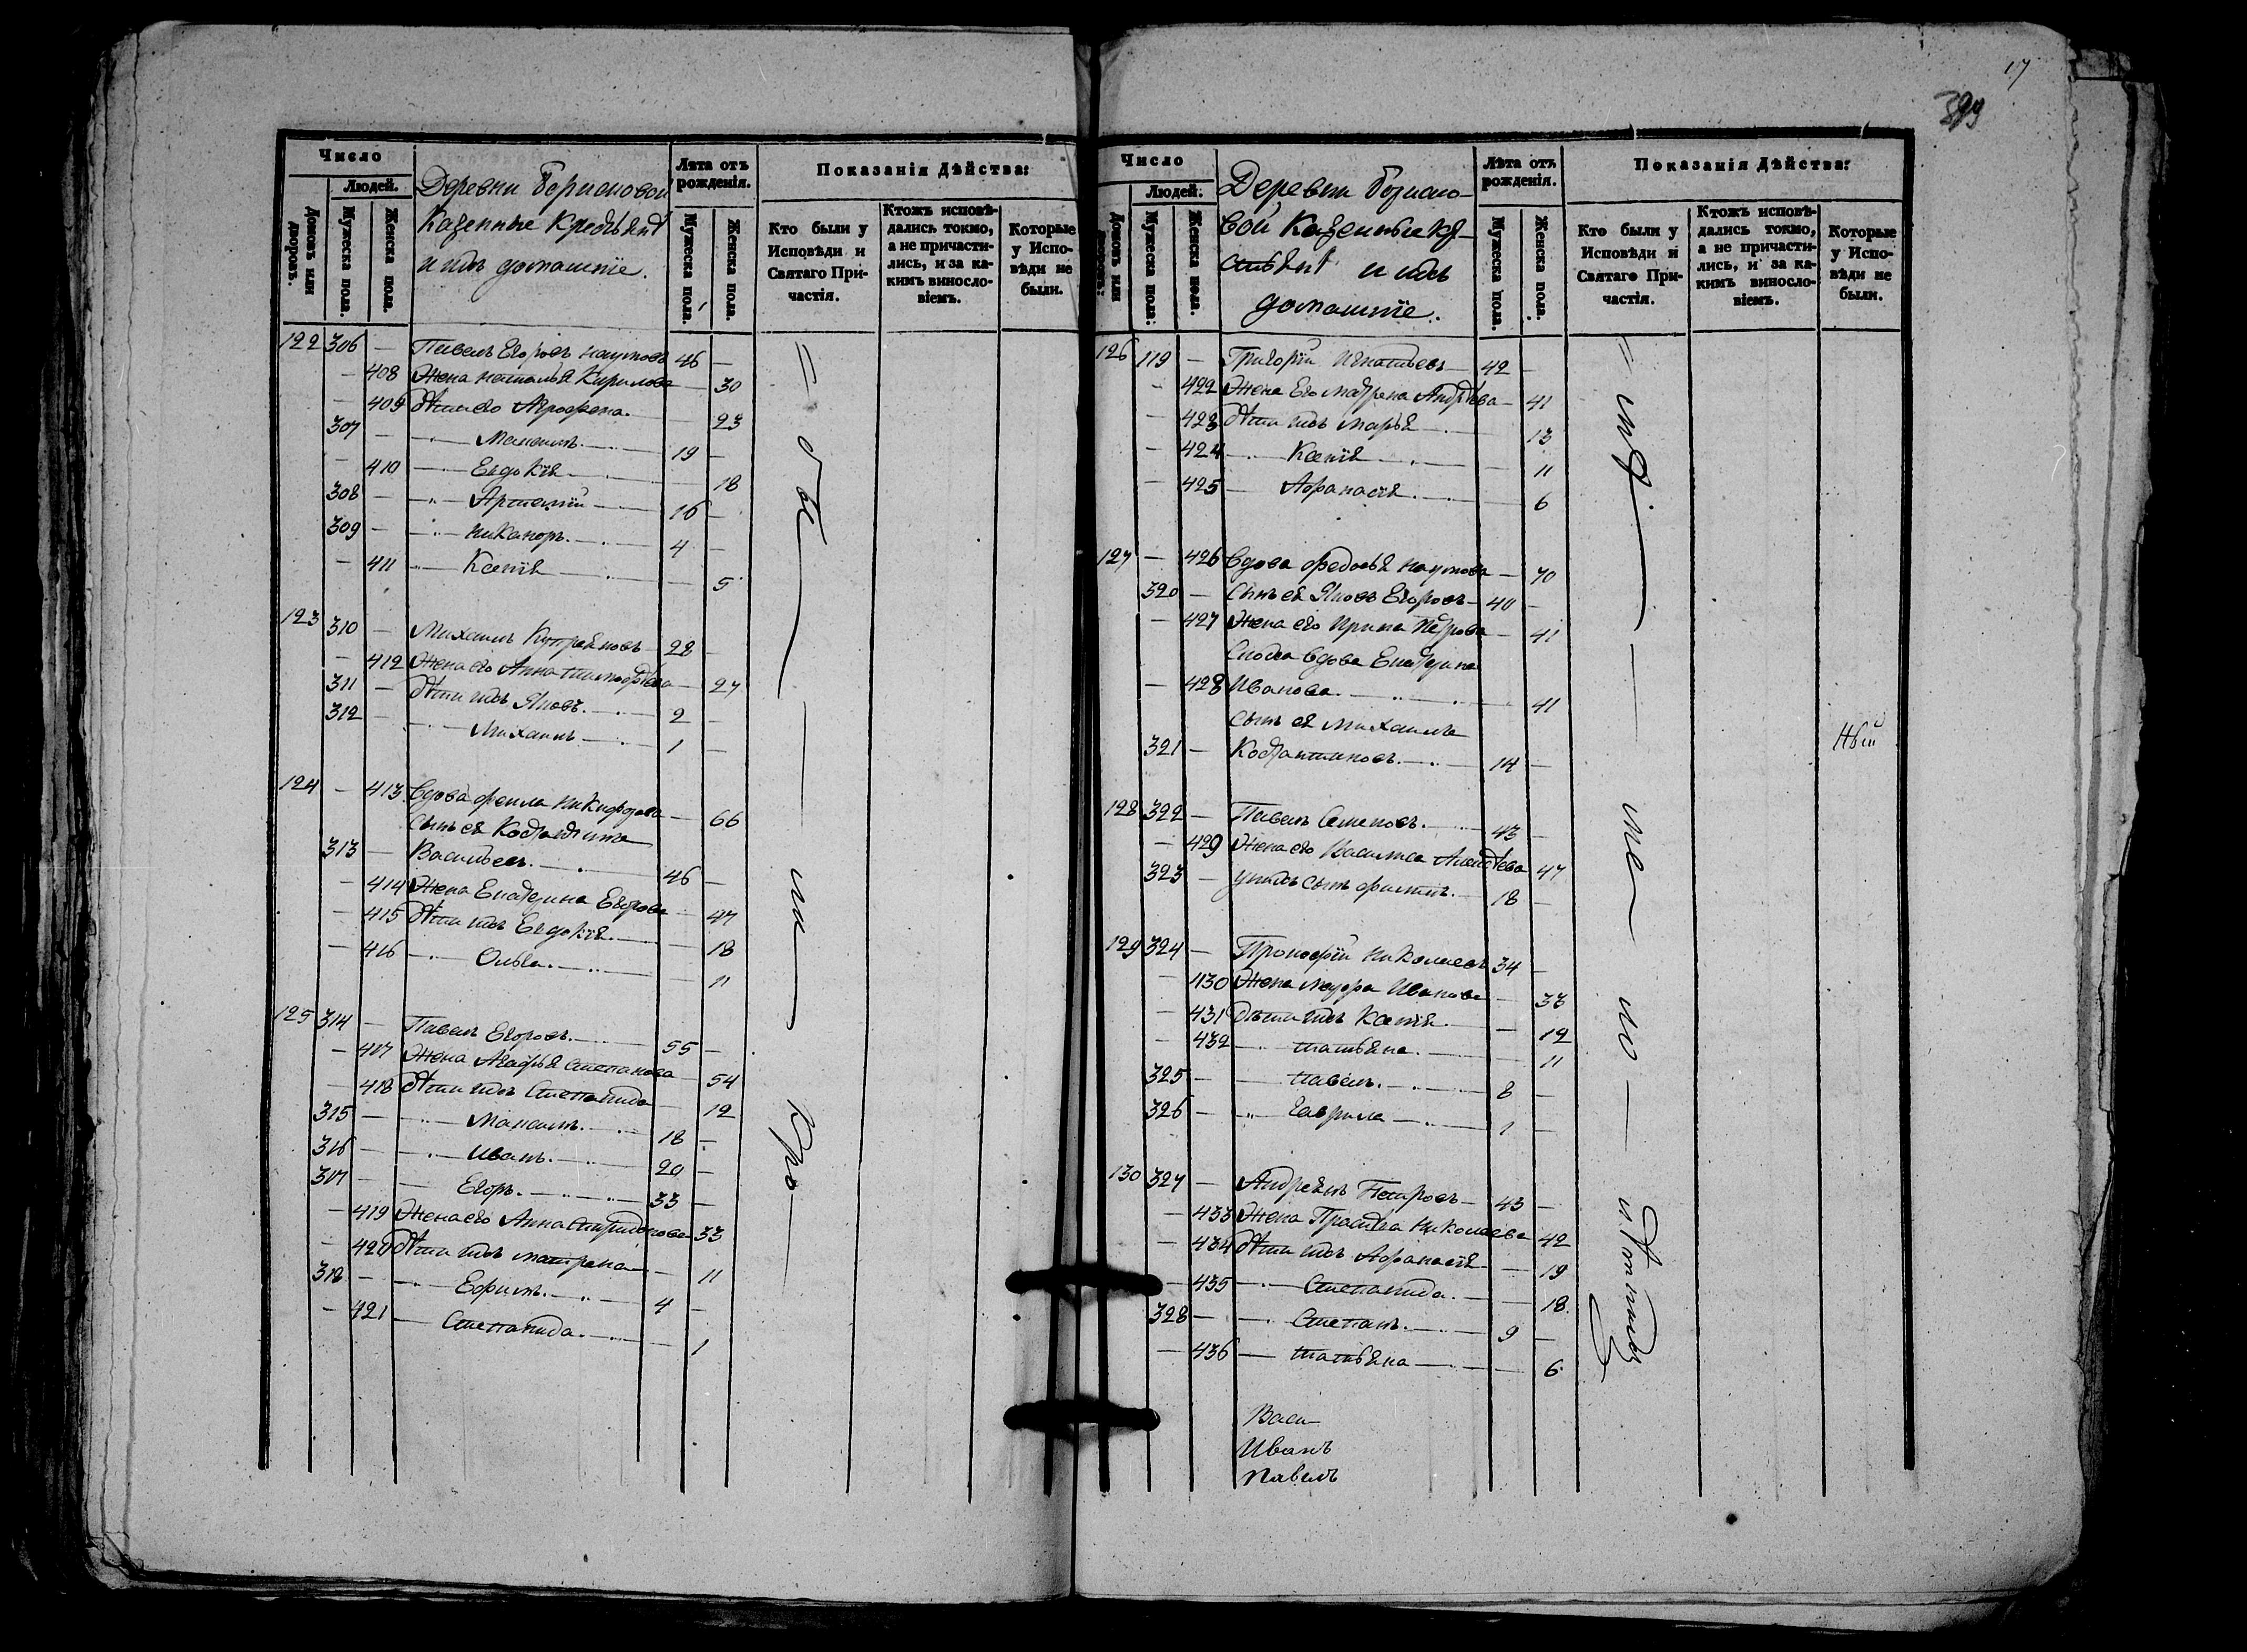 Число
Людей.
Домовъ или дворовъ.
Мужеска пола.
Женска пола.
Деревни Борисковой
Казенные Крестьянѣ
и ихъ домашніе.
Лѣта отъ рожденія.
Мужеска пола.
Женска пола.
Показанія Дѣйства:
Кто были у Исповѣди и Святаго Причастія.
Ктожъ исповѣдались токмо, а не причастились, и за какимъ винословіемъ.
Которые у Исповѣди не были.
122 306 — Павелъ Егоровъ Наумовъ 46 —
— 408 Жена Наталья Кирилова — 30
— 409 дѣти его Агрофена. — 23
307 — Максимъ. 19 —
— 410 Евдокія — 18
308 — Арсеній 16 —
309 — Никаноръ. 4 —
— 411 Ксенія — 5
123 310 — Михаилъ Купреяновъ 28 —
— 412 Жена его Анна Тимофѣева — 27
311 — дѣти ихъ Яковъ. 2 —
312 — Михаилъ 1 —
124 — 413 Вдова Фекла Никифорова — 66
Сынъ ея Костантинъ
313 — Васильевъ. 46 —
— 414 Жена Екатерина Егорова — 47
— 415 дѣти ихъ Евдокія. — 18
— 416 Ольга. — 11
125 314 — Павелъ Егоровъ. 55 —
— 417 Жена Агафья Степанова — 54
— 418 дѣти ихъ Степанида — 12
315 — Максимъ. 18 —
316 — Иванъ. 20 —
317 — Егоръ. 33 —
— 419 Жена его Анна Спиридонова 33
— 420 дѣти ихъ Матрена — 11
318 — Ефимъ. 4 —
— 421 Степанида. — 1
17
399
Число
Людей.
Домовъ или дворовъ:
Мужеска пола:
Женска пола.
Деревни Бориско-
вой Казенные кр-
стьянѣ и ихъ
домашніе.
Лѣта отъ рожденія.
Мужеска пола.
Женска пола:
Показанія Дѣйства:
Кто были у Исповѣди и Святаго Причастія.
Ктожъ исповѣдались токмо, а не причастились, и за какимъ винословіемъ.
Которые у Исповѣди не были.
126 119 — Григорій Игнатьевъ 42 —
— 422 Жена Его Матрена Андрѣева — 41
— 423 дѣти ихъ Марья — 13
— 424 Ксенія — 11
— 425 Афанасія — 6
127 — 426 Вдова Федосья Наумова — 70
320 — Сынъ ея Яковъ Егоровъ 40 —
— 427 Жена его Ирина Петрова — 41
Сноха вдова Екатерина
— 428 Иванова. — 41
Сынъ ея Михаилъ
321 — Костантиновъ. 14 —
128 322 — Павелъ Семеновъ. 43 —
— 429 Жена его Василиса Алексѣева 47
323 — у нихъ сынъ Филипъ. 18 —
129 324 — Прокофій Николаевъ 34 —
— 430 Жена Мавра Иванова — 33
— 431 дѣти ихъ Ксенія — 12
— 432 Татьяна. — 11
325 — Павелъ. 8 —
326 — Гаврила 1 —
130 327 — Андреянъ Петровъ 43 —
— 433 Жена Праскева Николаева 42
— 434 дѣти ихъ Афанасія — 19
— 435 Степанида. — 18
328 — Степанъ. 9 —
— 436 Татьяна — 6
Васи
Иванъ
Павилъ